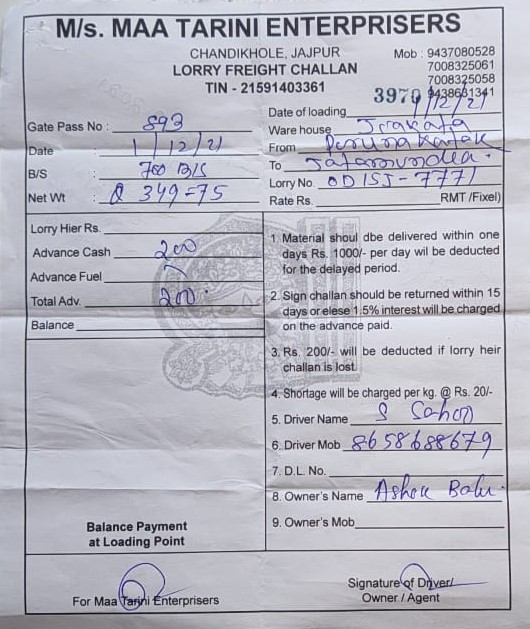 M/s. MAA TARINI ENTERPRISERS
CHANDIKHOLE, JAJPUR
LORRY FREIGHT CHALLAN
TIN - 21591403361
Mob : 9437080528
7008325061
7008325058
9438631341
3970
Gate Pass No : 893
Date : 1/12/21
B/S : 700 B/S
Net Wt : Q 349=75
Date of loading 1/12/21
Ware house
From
To
Lorry No. OD15J-7771
Rate Rs. RMT /Fixel)
Lorry Hier Rs.
Advance Cash 200
Advance Fuel
Total Adv. 200
Balance
1. Material shoul dbe delivered within one
days Rs. 1000/- per day wil be deducted
for the delayed period.
2. Sign challan should be returned within 15
days or elese 1.5% interest will be charged
on the advance paid.
3. Rs. 200/- will be deducted if lorry heir
challan is lost.
4. Shortage will be charged per kg. @ Rs. 20/-
5. Driver Name S Sahoo
6. Driver Mob 8658688679
7. D.L. No.
8. Owner's Name Ashok Balu.
9. Owner's Mob.
Balance Payment
at Loading Point
For Maa Tarini Enterprisers
Signature of Driver/
Owner / Agent